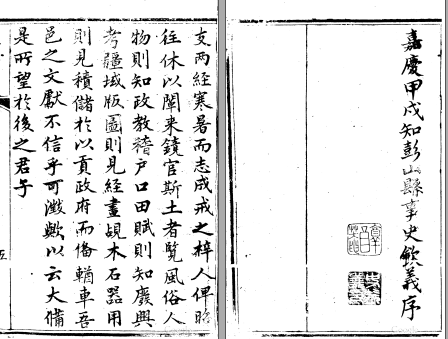 支两經寒暑而志成戒之梓人俾昭
往休以闡来鏡官斯土者覧風俗人
物則知政教稽户口田賦則知廢興
考疆域版圖則見經畫覘木石器用
則見積儲於以貢政府而備輶車吾
邑之文獻不信乎可徵歟以云大備
是所望於後之君子
五
嘉慶甲戌知彭山縣事史欽義序